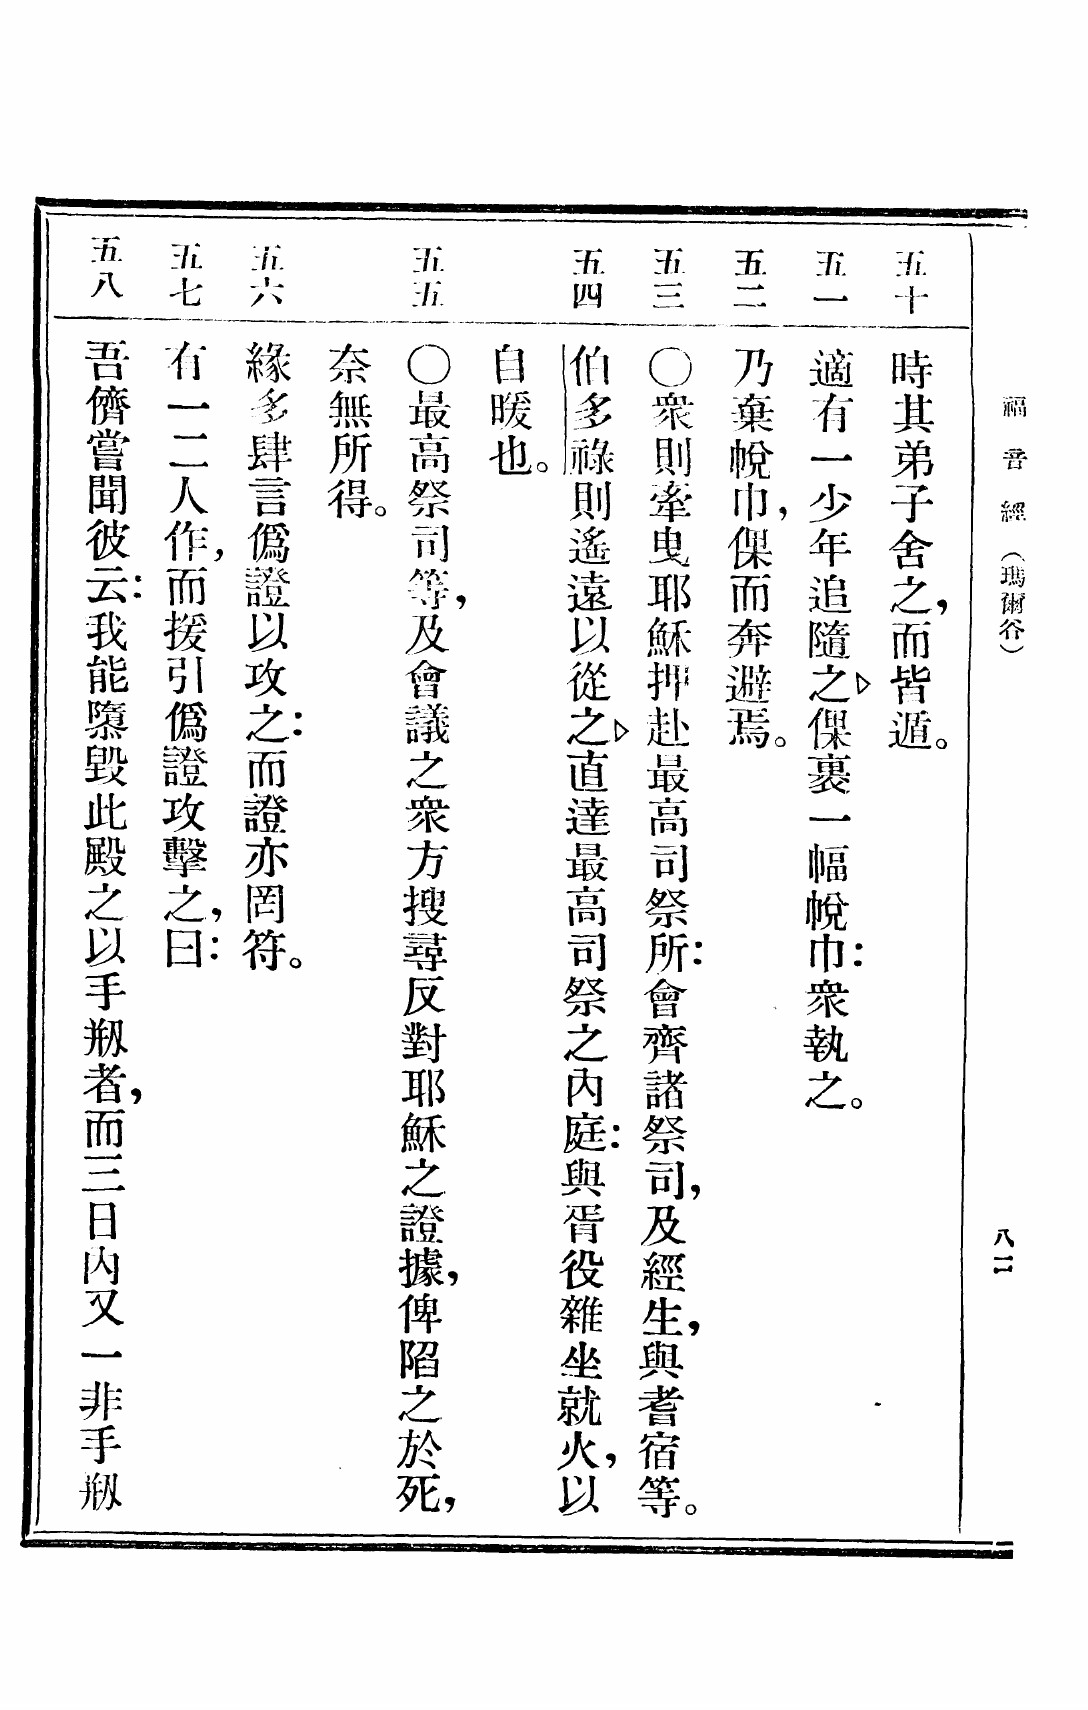 福音經(瑪爾谷)
八二
五十
時其弟子舍之,而皆遁。
五一
適有一少年追隨之▷倮裹一幅帨巾:衆執之。
五二
乃棄帨巾,倮而奔避焉。
五三
〇衆則牽曳耶穌押赴最高司祭所:會齊諸祭司,及經生,與耆宿等。
五四
伯多祿則遙遠以從之▷直達最高司祭之內庭:與胥役雜坐就火,以
自暖也。
五五
〇最高祭司等,及會議之衆方搜尋反對耶穌之證據,俾陷之於死,
奈無所得。
五六
緣多肆言僞證以攻之:而證亦罔符。
五七
有一二人作,而援引僞證攻擊之,曰:
五八
吾儕嘗聞彼云:我能隳毀此殿之以手剏者,而三日內又一非手剏